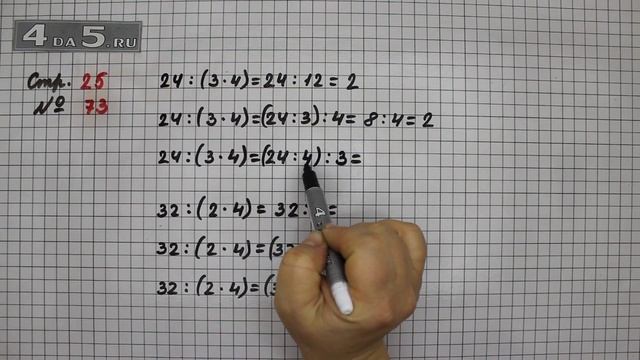 4DA5.RU
Стр. 25
№ 73
24 : (3 · 4) = 24 : 12 = 2
24 : (3 · 4) = (24 : 3) : 4 = 8 : 4 = 2
24 : (3 · 4) = (24 : 4) : 3 =
32 : (2 · 4) = 32 : =
32 : (2 · 4) = (
32 : (2 · 4) = (